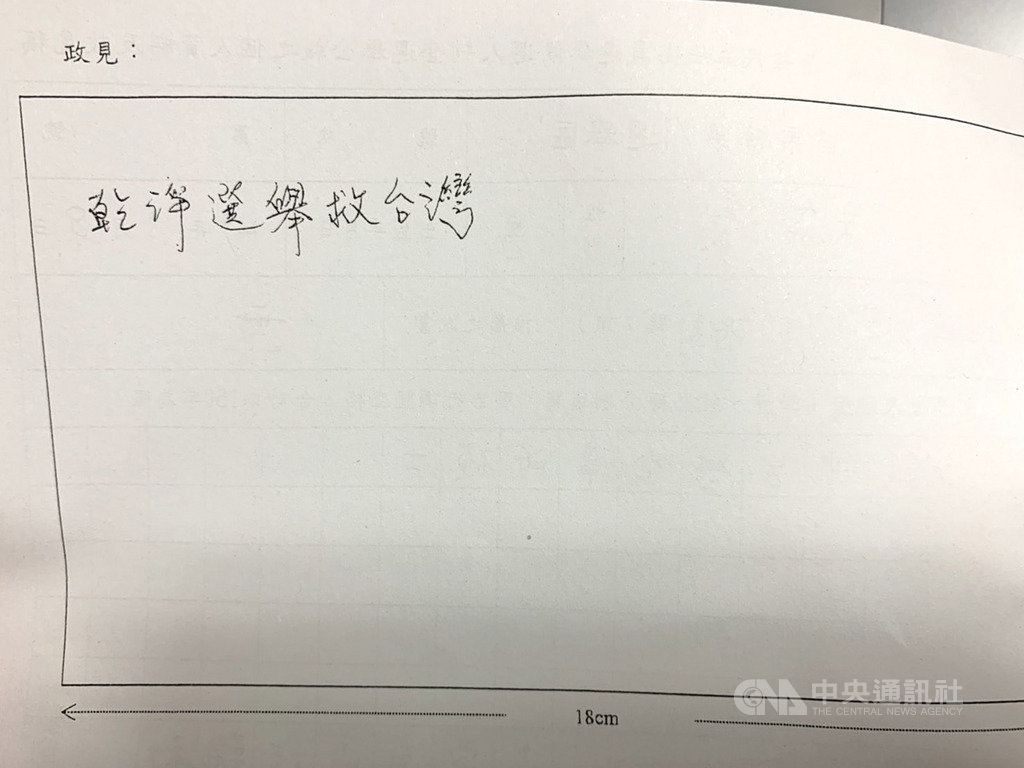 政見：
乾淨選舉救台灣
CNA 中央通訊社
THE CENTRAL NEWS AGENCY
18cm